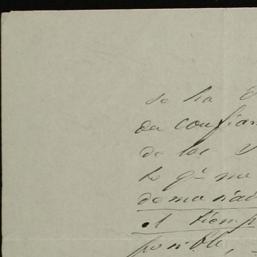 se ha
en confian
de las
lo q.e me
demasiad
el tiemp
posible,